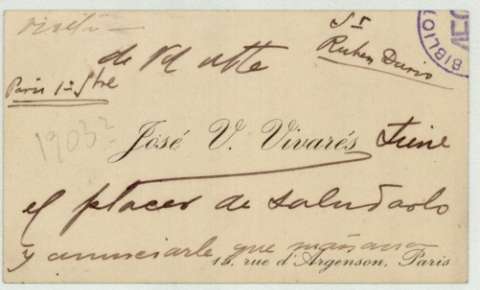 visita
Sr
Ruben Dario
BIBLIO
de Vd atte
Paris 1º Sbre
1903?
José V. Vivarés tiene
el placer de saludarlo
y anunciarle que mañana
15, rue d'Argenson, Paris